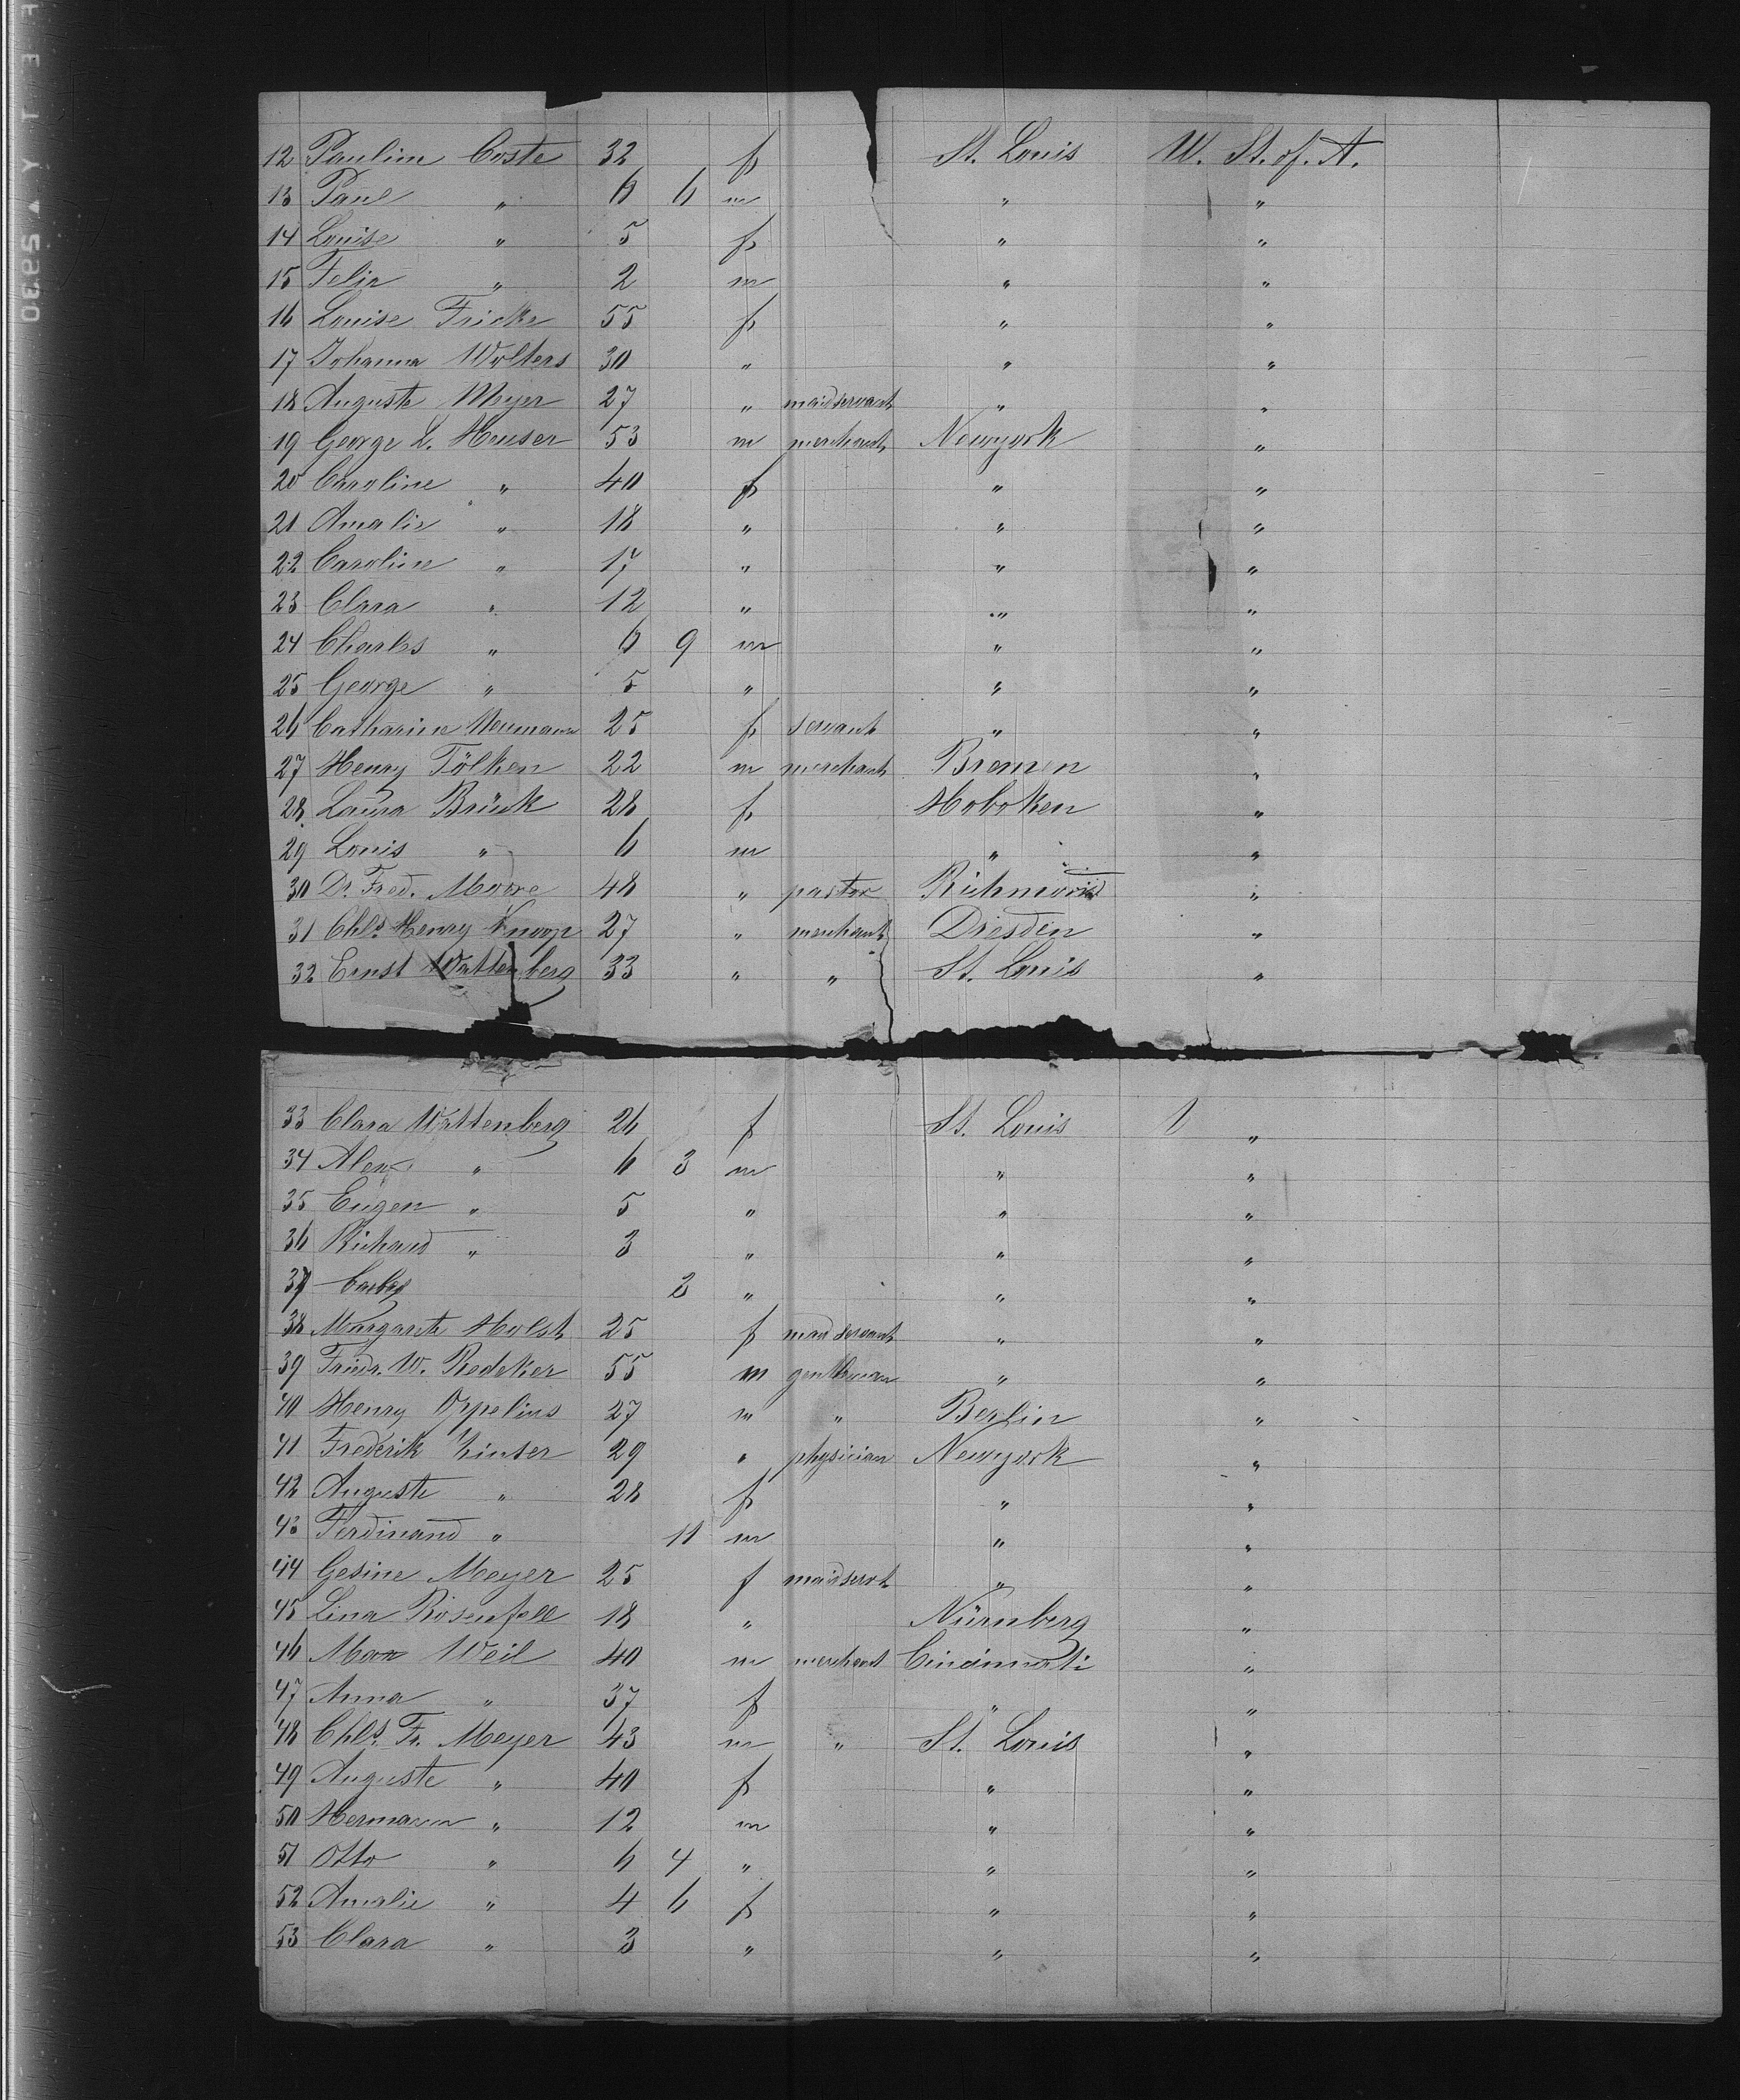 12 Paulin Coste 32 f St. Louis U. St. of. A.
13 Paul " 6 6 m " "
14 Louise " 5 f " "
15 Felix " 2 m " "
16 Louise Fricke 55 f " "
17 Johanna Wolters 30 " " "
18 Auguste Meyer 27 " maidservant " "
19 George L. Heuser 53 m merchant Newyork "
20 Caroline " 40 f " "
21 Amalie " 18 " " "
22 Carolin " 17 " " "
23 Clara " 12 " " "
24 Charles " 6 9 m " "
25 George " 5 " " "
26 Catharine Neumann 25 f servant " "
27 Henry Tölken 22 m merchant Bremen "
28 Laura Brück 28 f Hoboken "
29 Louis " 6 m " "
30 Dr. Fred. Moore 48 " pastor Richmond "
31 Chls. Henry Knoop 27 " merchant Dresden "
32 Ernst Wattenberg 33 " " St. Louis "
33 Clara Wattenberg 26 f St. Louis "
34 Alex " 6 3 m " "
35 Eugen " 5 " " "
36 Richard " 3 " " "
37 2 " " "
38 Margareth Holst 25 f maidservant " "
39 Friedr. W. Redeker 55 m gentleman " "
40 Henry Oppelius 27 m " Berlin "
41 Frederik Zinser 29 " physician Newyork "
42 Auguste " 28 f " "
43 Ferdinand " 11 m " "
44 Gesine Meyer 25 f maidservt " "
45 Lina Rosenfell 18 " Nürnberg "
46 Weil 40 m merchant Cincinnati "
47 Anna " 37 f " "
48 Chls. Fr. Meyer 43 m " St. Louis "
49 Auguste " 40 f " "
50 Hermann " 12 m " "
51 Otto " 6 4 " " "
52 Amalie " 4 6 f " "
53 Clara " 3 " " "